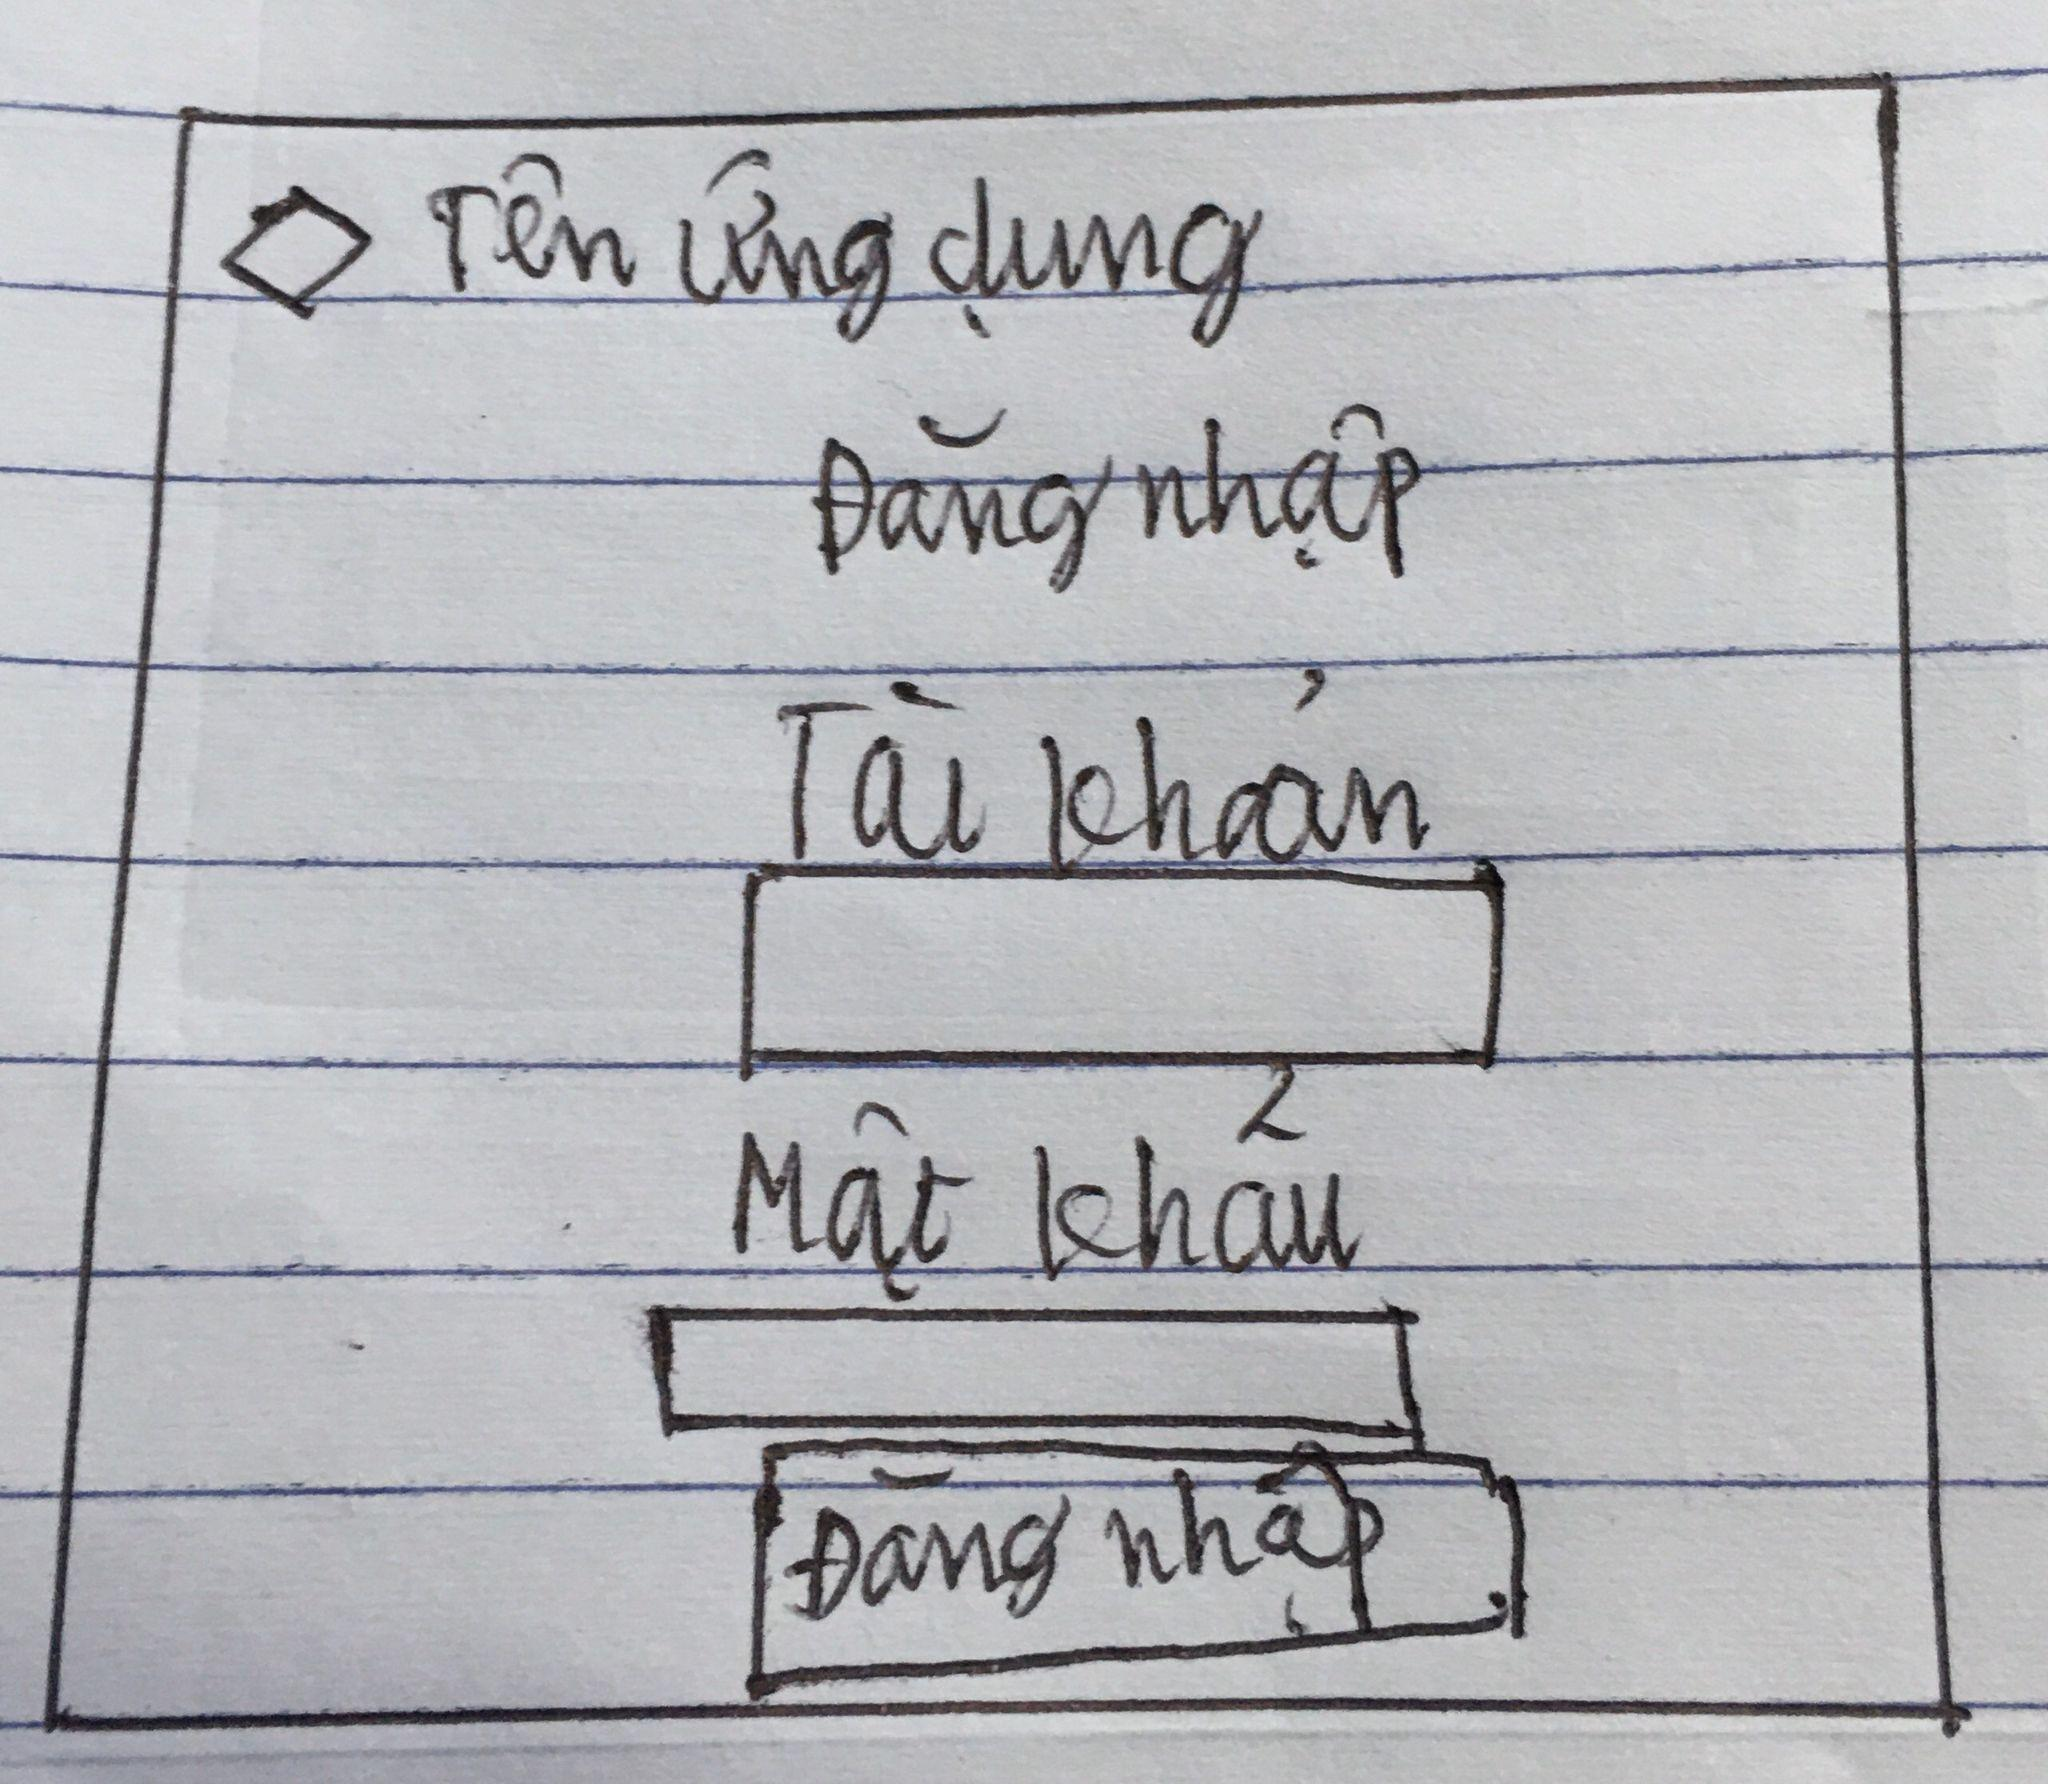 Tên ứng dụng
Đăng nhập
Tài khoản
Mật khẩu
Đăng nhập